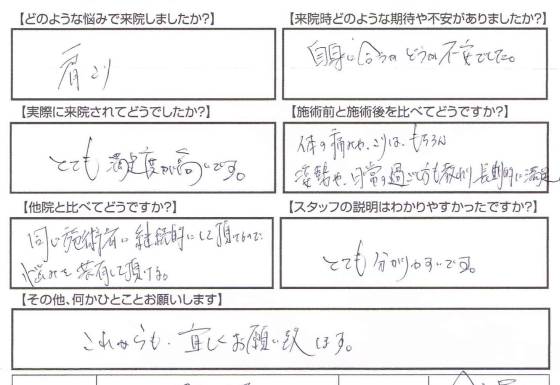 【どのような悩みで来院しましたか?】
肩こり
【来院時どのような期待や不安がありましたか?】
自身に合うのかどうか不安でした。
【実際に来院されてどうでしたか?】
とても満足度が高いです。
【施術前と施術後を比べてどうですか?】
体の痛みや、こりは、もちろん
姿勢や、日常の過ごし方も教わり長期的に満足
【他院と比べてどうですか?】
同じ施術者に継続的にして頂てるので
悩みを共有して頂ける。
【スタッフの説明はわかりやすかったですか?】
とても分かりやすいです。
【その他、何かひとことお願いします】
これからも、宜しくお願い致します。